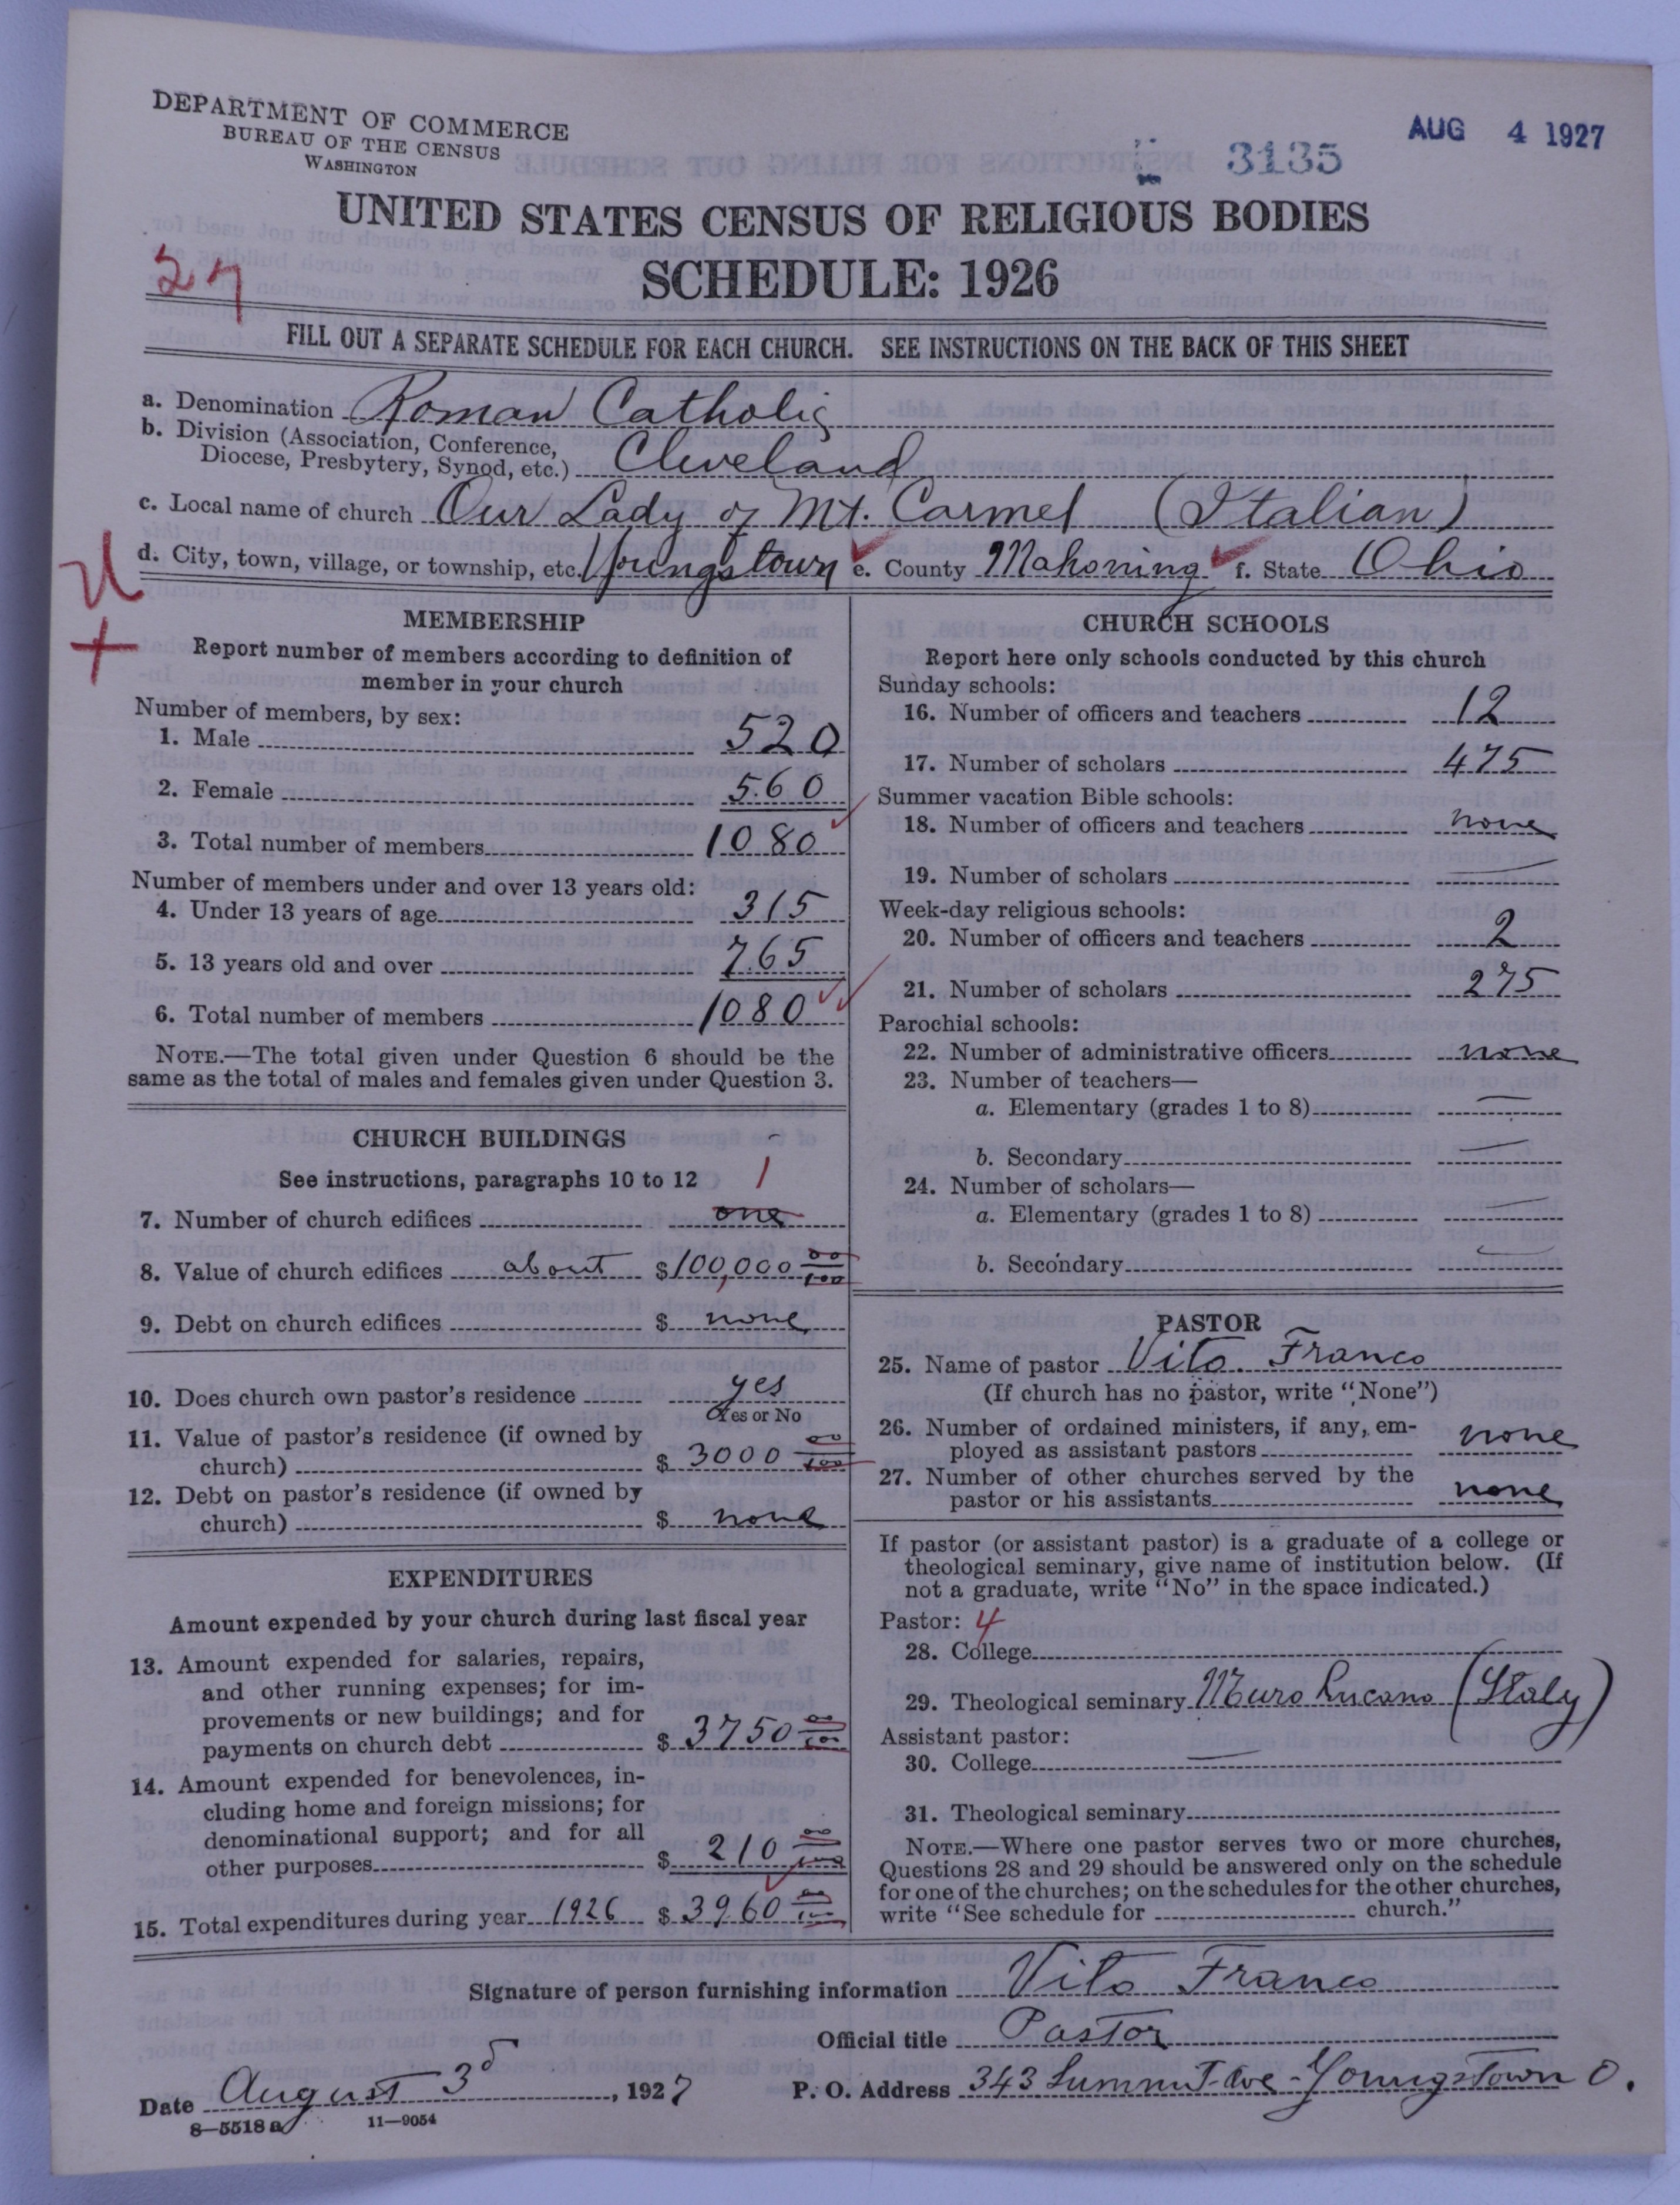 DEPARTMENT OF COMMERCE
BUREAU OF THE CENSUS
WASHINGTON
3135
AUG 4 1927
UNITED STATES CENSUS OF RELIGIOUS BODIES
SCHEDULE: 1926
27
FILL OUT A SEPARATE SCHEDULE FOR EACH CHURCH. SEE INSTRUCTIONS ON THE BACK OF THIS SHEET
a. Denomination Roman Catholic
b. Division (Association, Conference,
Diocese, Presbytery, Synod, etc.) Cleveland
c. Local name of church Our Lady of Mt. Carmel (Italian)
d. City, town, village, or township, etc. Youngstown e. County Mahoning f. State Ohio
MEMBERSHIP
Report number of members according to definition of
member in your church
Number of members, by sex:
1. Male 520
2. Female 560
3. Total number of members 1080
Number of members under and over 13 years old:
4. Under 13 years of age 315
5. 13 years old and over 765
6. Total number of members 1080
NOTE.—The total given under Question 6 should be the
same as the total of males and females given under Question 3.
CHURCH BUILDINGS
See instructions, paragraphs 10 to 12
1
7. Number of church edifices one
8. Value of church edifices about $100,000 00/100
9. Debt on church edifices $ none
10. Does church own pastor's residence yes
Yes or No
11. Value of pastor's residence (if owned by
church) $ 3000 00/100
12. Debt on pastor's residence (if owned by
church) $ none
EXPENDITURES
Amount expended by your church during last fiscal year
13. Amount expended for salaries, repairs,
and other running expenses; for im-
provements or new buildings; and for
payments on church debt $ 3750 00/100
14. Amount expended for benevolences, in-
cluding home and foreign missions; for
denominational support; and for all
other purposes $ 210 00/100
15. Total expenditures during year 1926 $ 3960 00/100
CHURCH SCHOOLS
Report here only schools conducted by this church
Sunday schools:
16. Number of officers and teachers 12
17. Number of scholars 475
Summer vacation Bible schools:
18. Number of officers and teachers none
19. Number of scholars —
Week-day religious schools:
20. Number of officers and teachers 2
21. Number of scholars 275
Parochial schools:
22. Number of administrative officers none
23. Number of teachers—
a. Elementary (grades 1 to 8) —
b. Secondary —
24. Number of scholars—
a. Elementary (grades 1 to 8) —
b. Secondary —
PASTOR
25. Name of pastor Vito Franco
(If church has no pastor, write "None")
26. Number of ordained ministers, if any, em-
ployed as assistant pastors none
27. Number of other churches served by the
pastor or his assistants none
If pastor (or assistant pastor) is a graduate of a college or
theological seminary, give name of institution below. (If
not a graduate, write "No" in the space indicated.)
Pastor: 4
28. College
29. Theological seminary Muro Lucano (Italy)
Assistant pastor:
30. College —
31. Theological seminary
NOTE.—Where one pastor serves two or more churches,
Questions 28 and 29 should be answered only on the schedule
for one of the churches; on the schedules for the other churches,
write "See schedule for church."
Signature of person furnishing information Vito Franco
Official title Pastor
Date August 3d, 1927 P. O. Address 343 Summit Ave - Youngstown O.
8—5518 a 11—9054